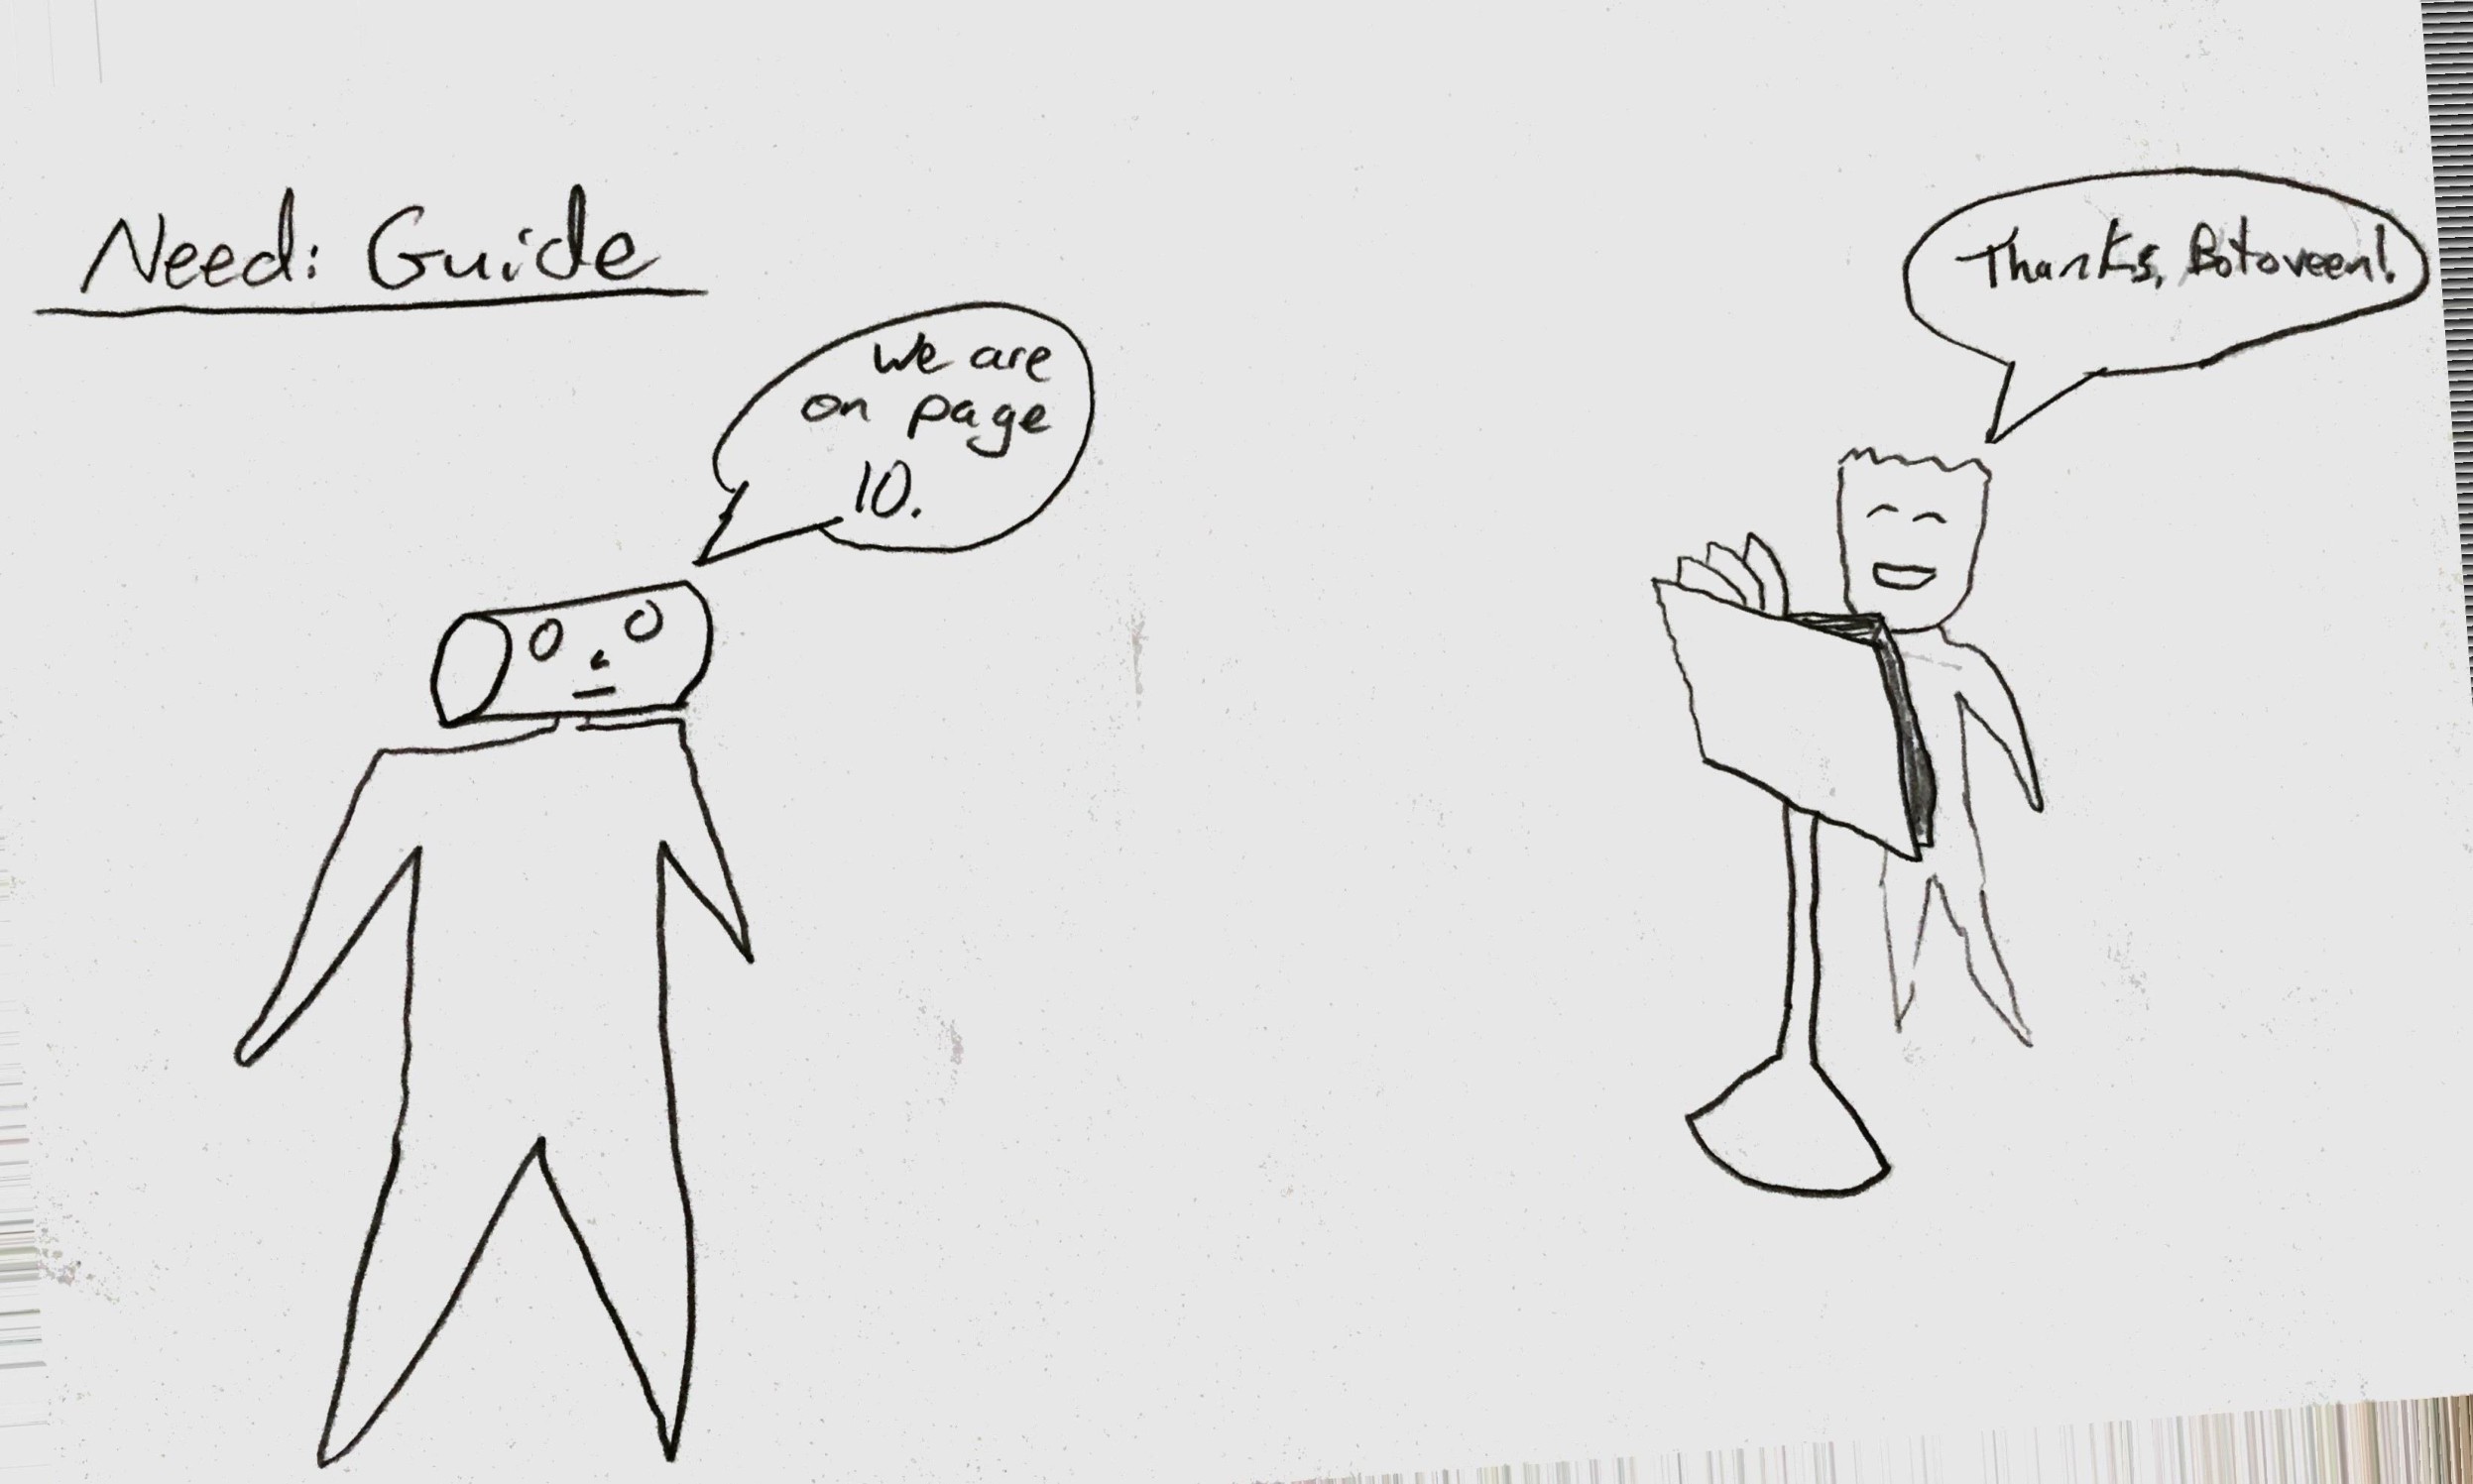 Need: Guide
We are
on page
10.
Thanks, Botoveen!